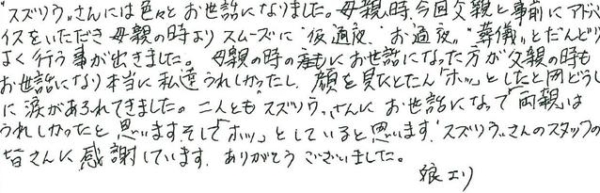 "スズリウ"さんには色々とお世話になりました。母親の時、今回父親と事前にアドバ
イスをいただき母親の時よりスムーズに"仮通夜""お通夜""葬儀"とだんどり
よく行う事が出きました。母親の時の　にお世話になった方が父親の時も
お世話になり本当に私達うれしかったし、顔を見たとたん「ホッ」としたと同どうじ
に涙があふれてきました。二人とも"スズリウ"さんにお世話になって両親は
うれしかったと思いますそして「ホッ」としていると思います。"スズリウ"さんのスタッフの
皆さんに感謝しています。ありがとうございました。
娘エリ